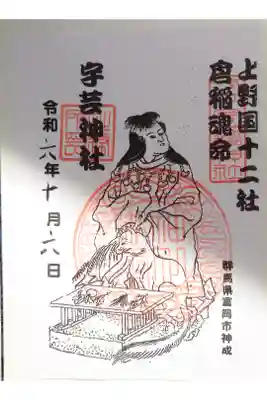 上野国十二社
倉稲魂命
宇芸神社
令和六年十月六日
群馬県富岡市神成